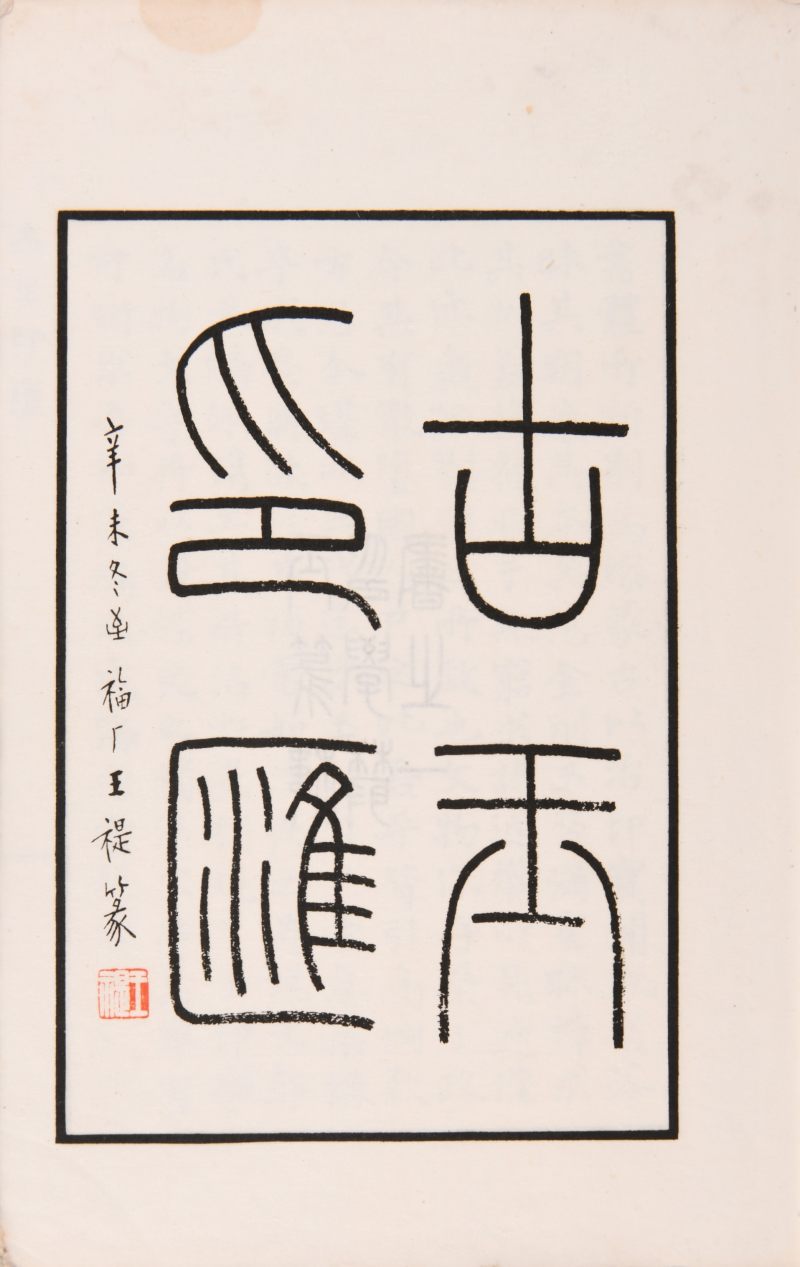 古玉
印匯
辛未冬 福厂王禔篆
王禔